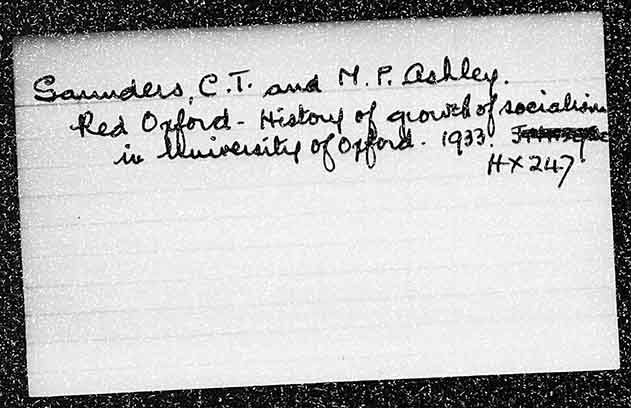 Saunders, C.T. and M.P. Ashley.
Red Oxford - History of growth of socialism
in University of Oxford. 1933.
HX247